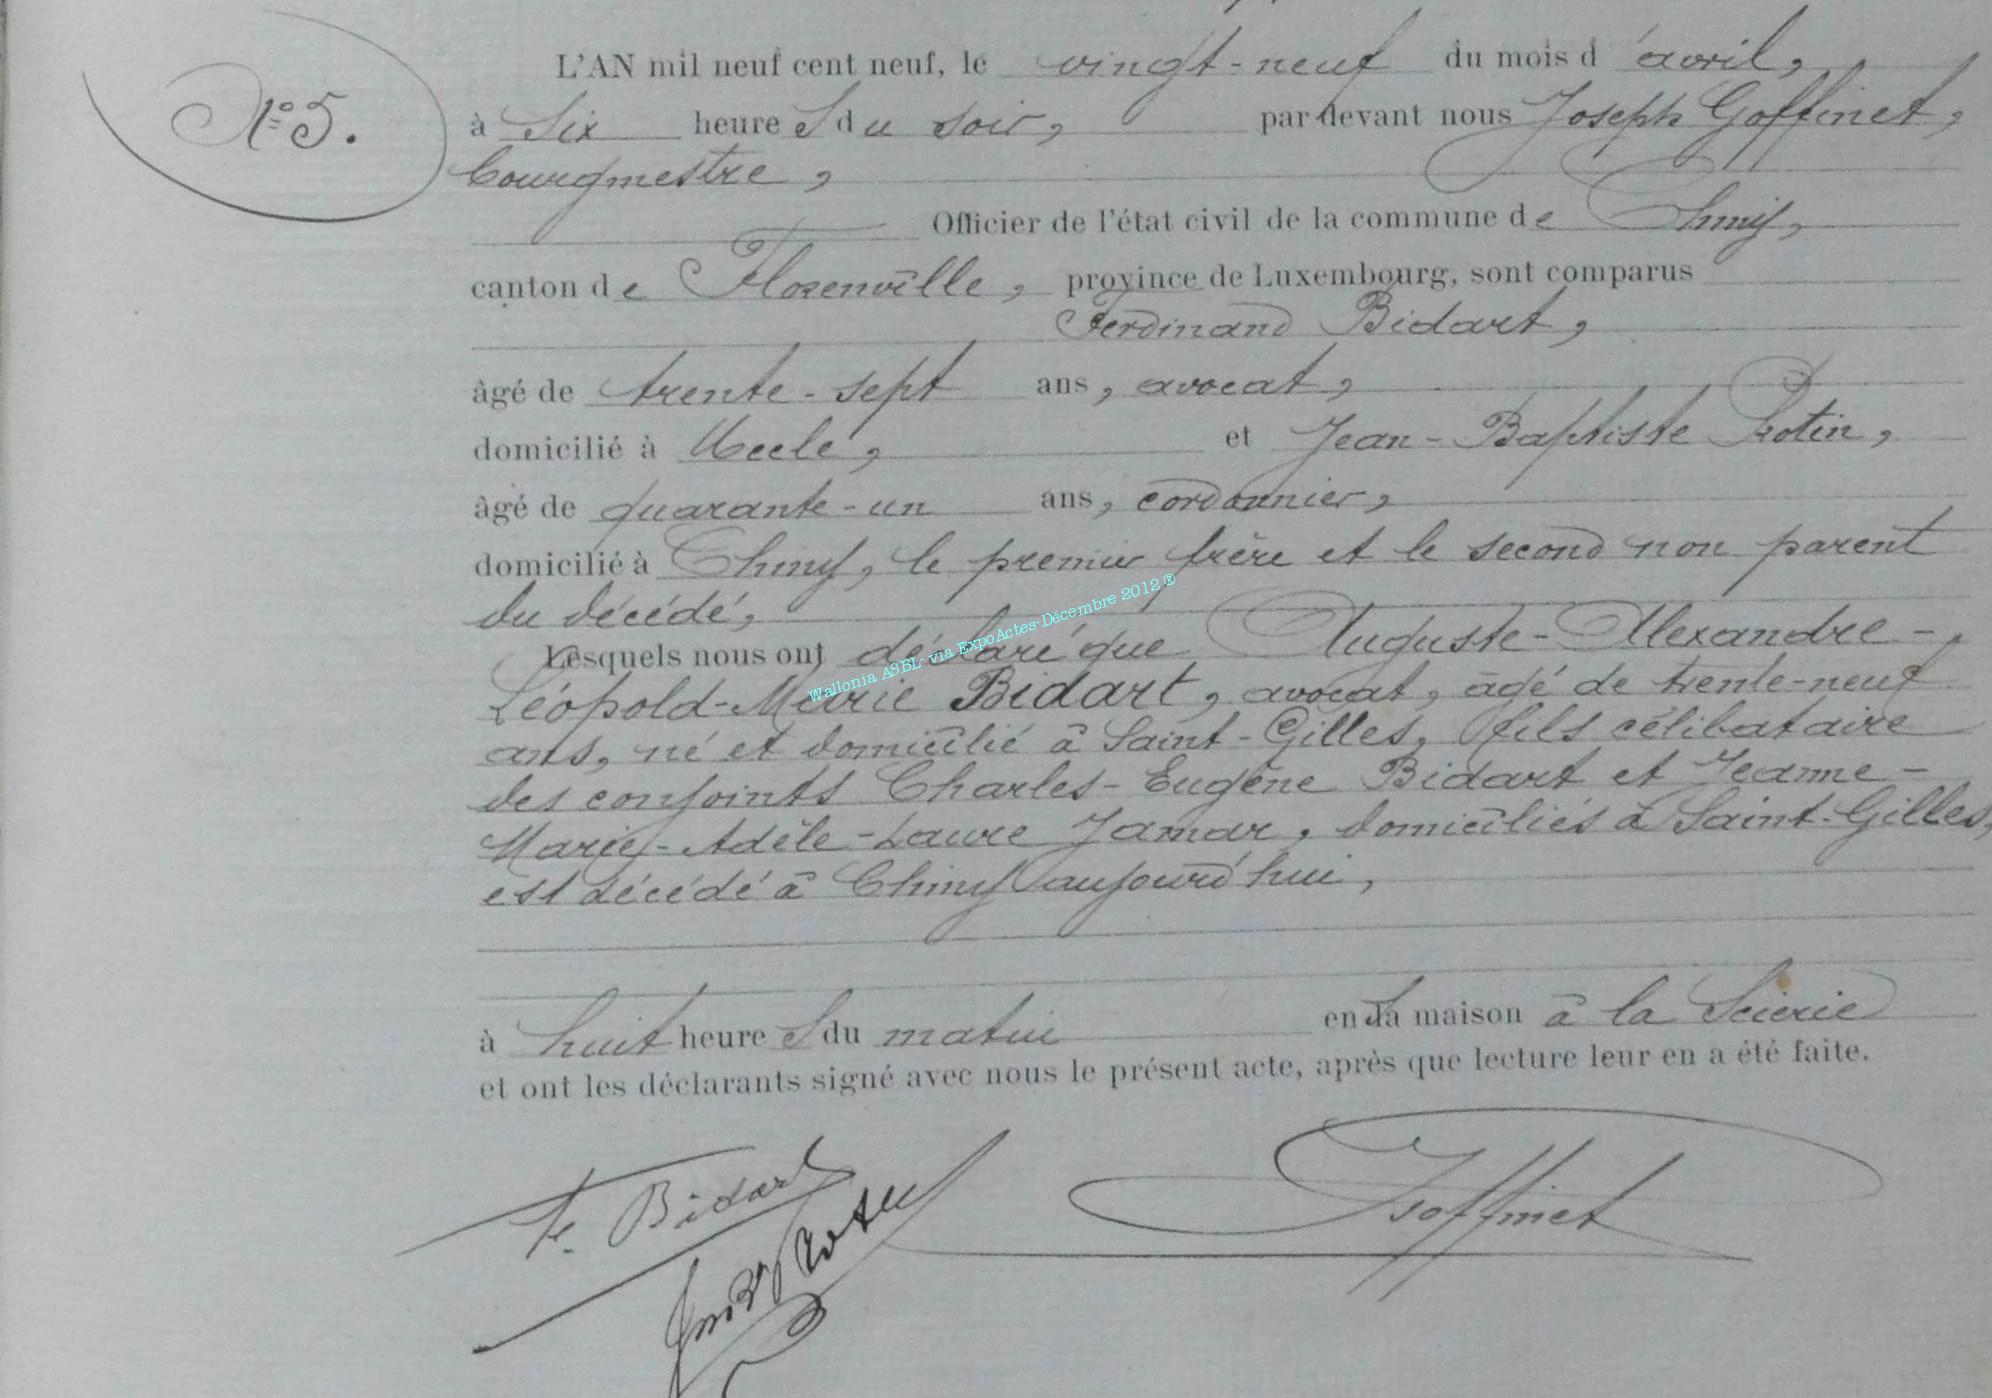 N° 5.
L'AN mil neuf cent neuf, le vingt-neuf du mois d'avril,
à six heures du soir, par devant nous Joseph Goffinet,
bourgmestre,
Officier de l'état civil de la commune de Chiny,
canton de Florenville, province de Luxembourg, sont comparus
Ferdinand Bidart,
âgé de trente-sept ans, avocat,
domicilié à Uccle, et Jean-Baptiste Rotin,
âgé de quarante-un ans, cordonnier,
domicilié à Chiny, le premier frère et le second non parent
du décédé,
Lesquels nous ont déclaré que Auguste-Alexandre-
Léopold-Marie Bidart, avocat, âgé de trente-neuf
ans, né et domicilié à Saint-Gilles, fils célibataire
des conjoints Charles-Eugène Bidart et Jeanne-
Marie-Adèle-Laure Jamar, domiciliés à Saint-Gilles,
est décédé à Chiny aujourd'hui,
à huit heures du matin en sa maison à la Scierie
et ont les déclarants signé avec nous le présent acte, après que lecture leur en a été faite.
F. Bidart
Rotin
JGoffinet
Wallonia ASBL- via ExpoActes-Décembre 2012 ®